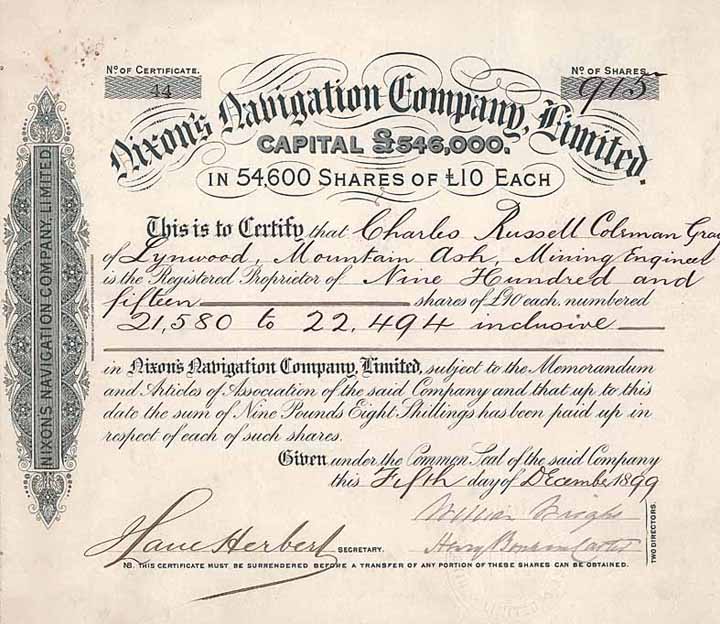 No. OF CERTIFICATE.
44
No. OF SHARES
915
Nixon's Navigation Company, Limited.
CAPITAL £546,000.
IN 54,600 SHARES OF £10 EACH
NIXON'S NAVIGATION COMPANY, LIMITED
This is to Certify that Charles Russell Coleman
of Lynwood, Mountain Ash, Mining Engineer
is the Registered Proprietor of Nine Hundred and
fifteen shares of £10 each, numbered
21,580 to 22,494 inclusive
in Nixon's Navigation Company, Limited, subject to the Memorandum
and Articles of Association of the said Company and that up to this
date the sum of Nine Pounds Eight Shillings has been paid up in
respect of each of such shares.
Given under the Common Seal of the said Company
this Fifth day of December 1899
William
Henry
TWO DIRECTORS.
Herbert SECRETARY.
NB. THIS CERTIFICATE MUST BE SURRENDERED BEFORE A TRANSFER OF ANY PORTION OF THESE SHARES CAN BE OBTAINED.